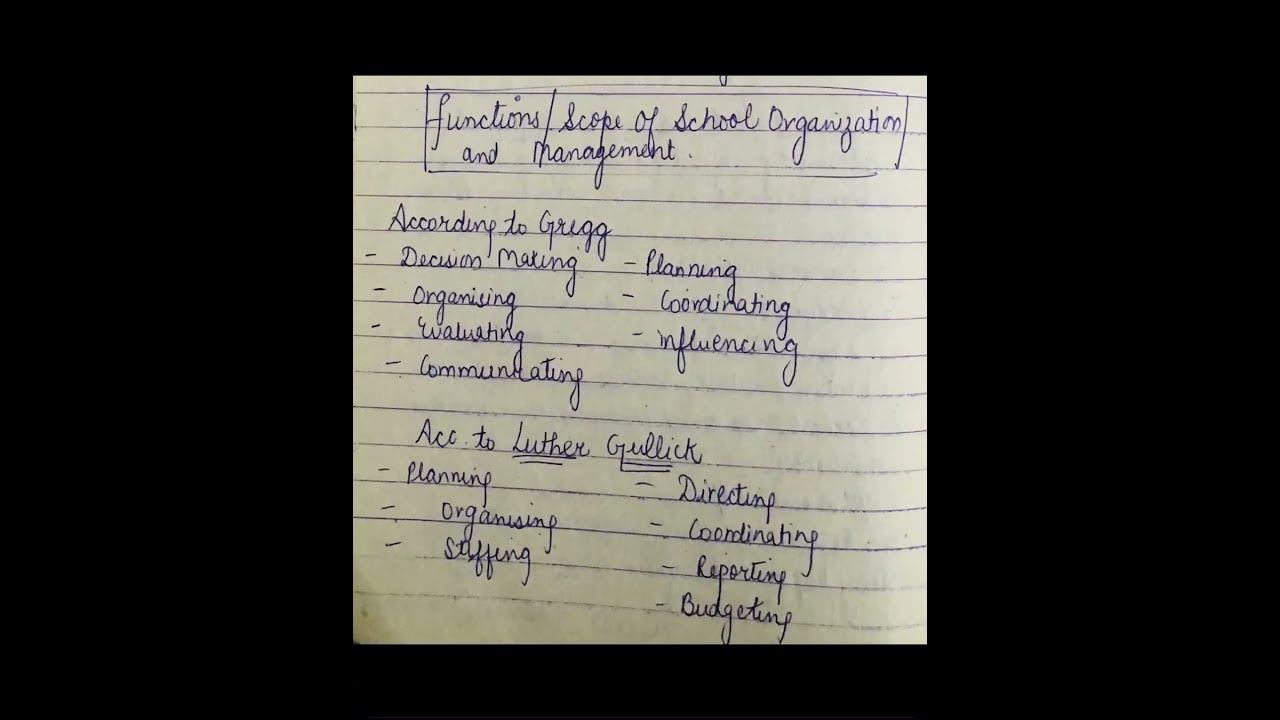 Functions/Scope of School Organization
and Management.
According to Gregg
- Decision Making - Planning
- Organising - Coordinating
- Evaluating - influencing
- Communicating
Acc. to Luther Gullick
- Planning - Directing
- Organising - Coordinating
- Staffing - Reporting
- Budgeting